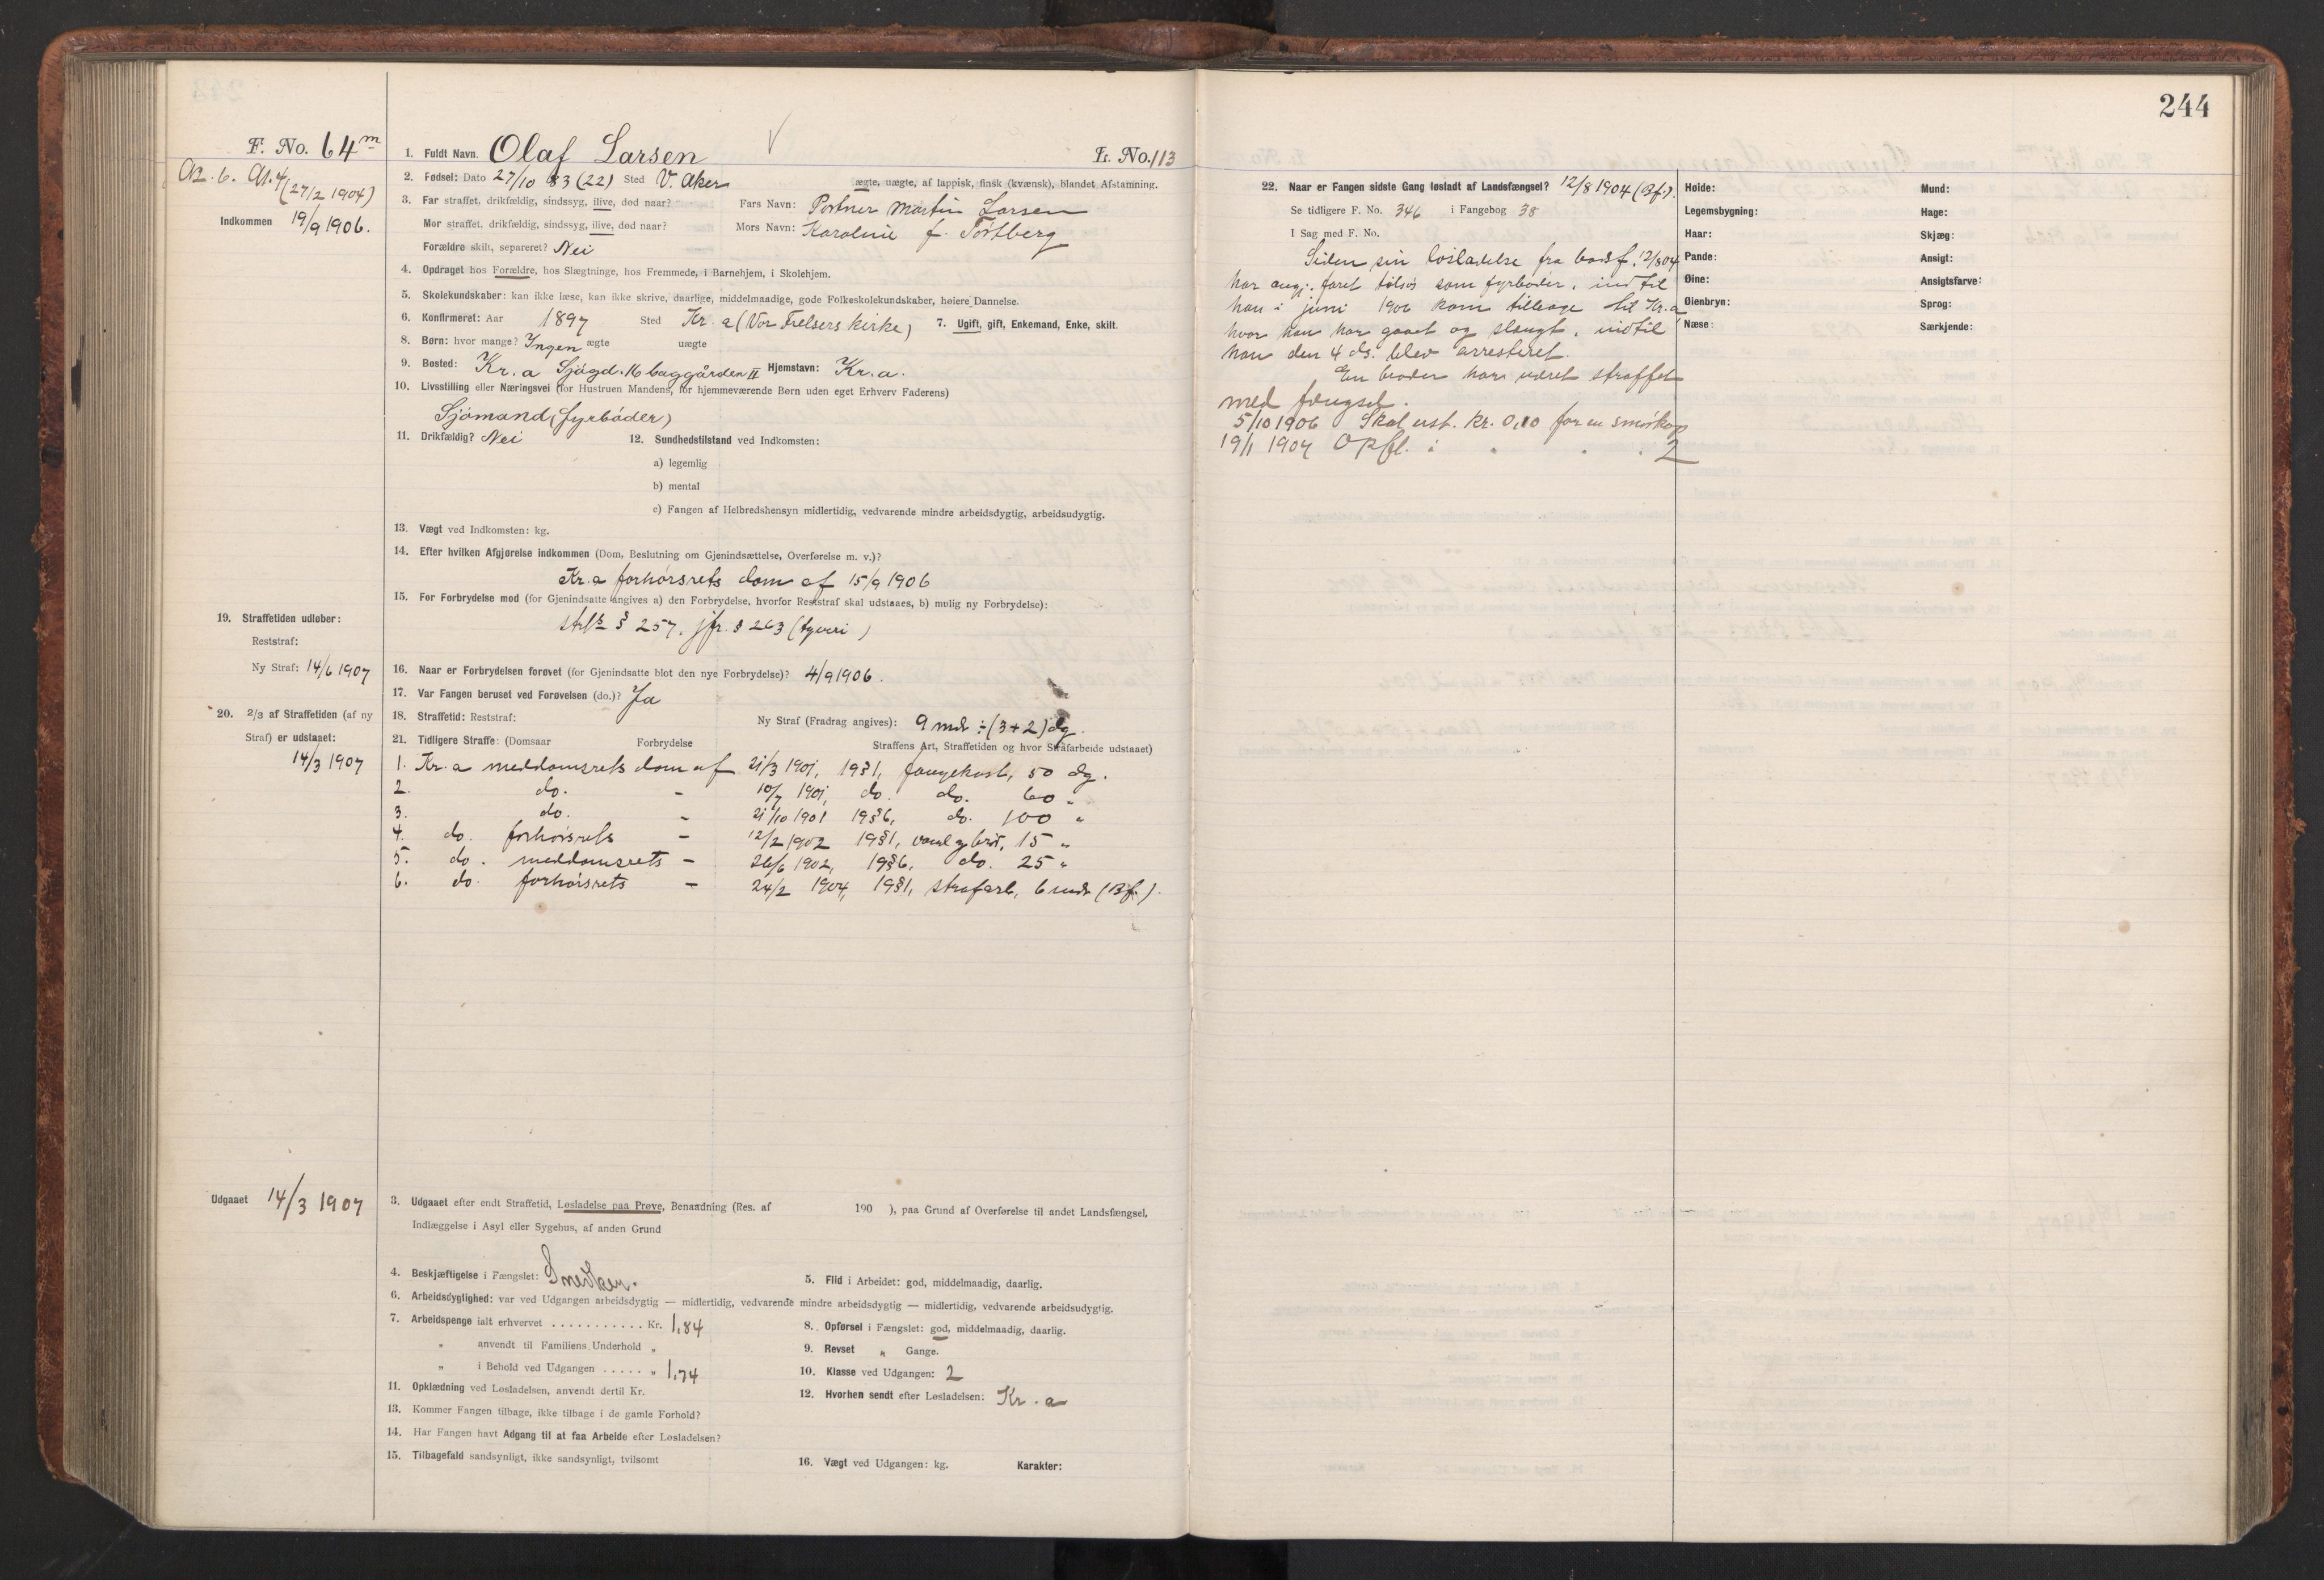 244
F. No. 64 m
1. Fuldt Navn. Olaf Larsen
L. No. 113
(27/2 1904)
2. Fødsel: Dato 27/10 83 (22) Sted V. Aker
ægte, uægte, af lappisk, finsk (kvænsk), blandet Afstamning.
Indkommen 19/9 1906.
3. Far straffet, drikfældig, sindssyg, ilive, død naar? Fars Navn: Portner Martin Larsen
Mor straffet, drikfældig, sindssyg, ilive, død naar? Mors Navn: Karoline f. Tortberg
Forældre skilt, separeret? Nei
4. Opdraget hos Forældre, hos Slægtninge, hos Fremmede, i Barnehjem, i Skolehjem.
5. Skolekundskaber: kan ikke læse, kan ikke skrive, daarlige, middelmaadige, gode Folkeskolekundskaber, høiere Dannelse.
6. Konfirmeret: Aar 1897 Sted Kr.a (Vor Frelsers kirke) 7. Ugift, gift, Enkemand, Enke, skilt.
8. Børn: hvor mange? Ingen ægte uægte
9. Bosted: Kr.a Sjøgd. 16 baggården II Hjemstavn: Kr.a.
10. Livsstilling eller Næringsvei (for Hustruen Mandens, for hjemmeværende Børn uden eget Erhverv Faderens)
Sjømand (fyrbøder)
11. Drikfældig? Nei 12. Sundhedstilstand ved Indkomsten:
a) legemlig
b) mental
c) Fangen af Helbredshensyn midlertidig, vedvarende mindre arbeidsdygtig, arbeidsudygtig.
13. Vægt ved Indkomsten: kg.
14. Efter hvilken Afgjørelse indkommen (Dom, Beslutning om Gjenindsættelse, Overførelse m. v.)?
Kr.a forhørsrets dom af 15/9 1906
15. For Forbrydelse mod (for Gjenindsatte angives a) den Forbrydelse, hvorfor Reststraf skal udstaaes, b) mulig ny Forbrydelse):
§ 257, jfr. § 263 (tyveri)
19. Straffetiden udløber:
Reststraf:
Ny Straf: 14/6 1907
16. Naar er Forbrydelsen forøvet (for Gjenindsatte blot den nye Forbrydelse)? 4/9 1906.
17. Var Fangen beruset ved Forøvelsen (do.)? Ja
20. 2/3 af Straffetiden (af ny
Straf) er udstaaet:
14/3 1907
18. Straffetid: Reststraf: Ny Straf (Fradrag angives): 9 mdr ÷ (3+2) dg.
21. Tidligere Straffe: (Domsaar Forbrydelse Straffens Art, Straffetiden og hvor Strafarbeide udstaaet)
1. Kr.a meddomsrets dom af 21/3 1901, 19§1, fangekost, 50 dg.
2. do. - 10/7 1901, do. do. 60 "
3. do. - 21/10 1901 19§6, do. 100 "
4. do. forhørsrets - 12/2 1902 19§1, vand og brød, 15 "
5. do. meddomsrets - 26/6 1902, 19§6, do. 25 "
6. do. forhørsrets - 24/2 1904, 19§1, strafarb., 6 mdr (Bf.).
Udgaaet 14/3 1907
3. Udgaaet efter endt Straffetid, Løsladelse paa Prøve, Benaadning (Res. af 190 ), paa Grund af Overførelse til andet Landsfængsel,
Indlæggelse i Asyl eller Sygehus, af anden Grund
4. Beskjæftigelse i Fængslet: Snedker.
5. Flid i Arbeidet: god, middelmaadig, daarlig.
6. Arbeidsdygtighed: var ved Udgangen arbeidsdygtig — midlertidig, vedvarende mindre arbeidsdygtig — midlertidig, vedvarende arbeidsudygtig.
7. Arbeidspenge ialt erhvervet . . . . . . . . . . . Kr. 1,84
8. Opførsel i Fængslet: god, middelmaadig, daarlig.
" anvendt til Familiens Underhold "
9. Revset " Gange.
" i Behold ved Udgangen . . . . . " 1,74
10. Klasse ved Udgangen: 2
11. Opklædning ved Løsladelsen, anvendt dertil Kr.
12. Hvorhen sendt efter Løsladelsen: Kr.a
13. Kommer Fangen tilbage, ikke tilbage i de gamle Forhold?
14. Har Fangen havt Adgang til at faa Arbeide efter Løsladelsen?
15. Tilbagefald sandsynligt, ikke sandsynligt, tvilsomt
16. Vægt ved Udgangen: kg. Karakter:
22. Naar er Fangen sidste Gang løsladt af Landsfængsel? 12/8 1904 (Bf.).
Se tidligere F. No. 346 i Fangebog 38
I Sag med F. No.
Siden sin løsladelse fra bodsf. 12/8 04
har angj. faret tilsjøs som fyrbøder, indtil
han i juni 1906 kom tilbage til Kr.a
hvor han har gaaet og slængt, indtil
han den 4 ds. blev arresteret.
En broder har været straffet
med fængsel.
5/10 1906 Skal erst. kr. 0,10 for en smørkop
19/1 1907 Opfl. i " " " 2
Høide:
Legemsbygning:
Haar:
Pande:
Øine:
Øienbryn:
Næse:
Mund:
Hage:
Skjæg:
Ansigt:
Ansigtsfarve:
Sprog:
Særkjende: